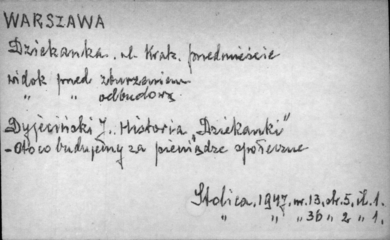 WARSZAWA
Dziekanka. ul. Krak. przedmieście
widok przed zburzeniem
" " odbudową
Dyjeciński J. Historia "Dziekanki"
- Oto co budujemy za pieniądze społeczne
Stolica, 1947, nr. 13, str. 5, il. 1.
" " " 36 " 2 " 1.